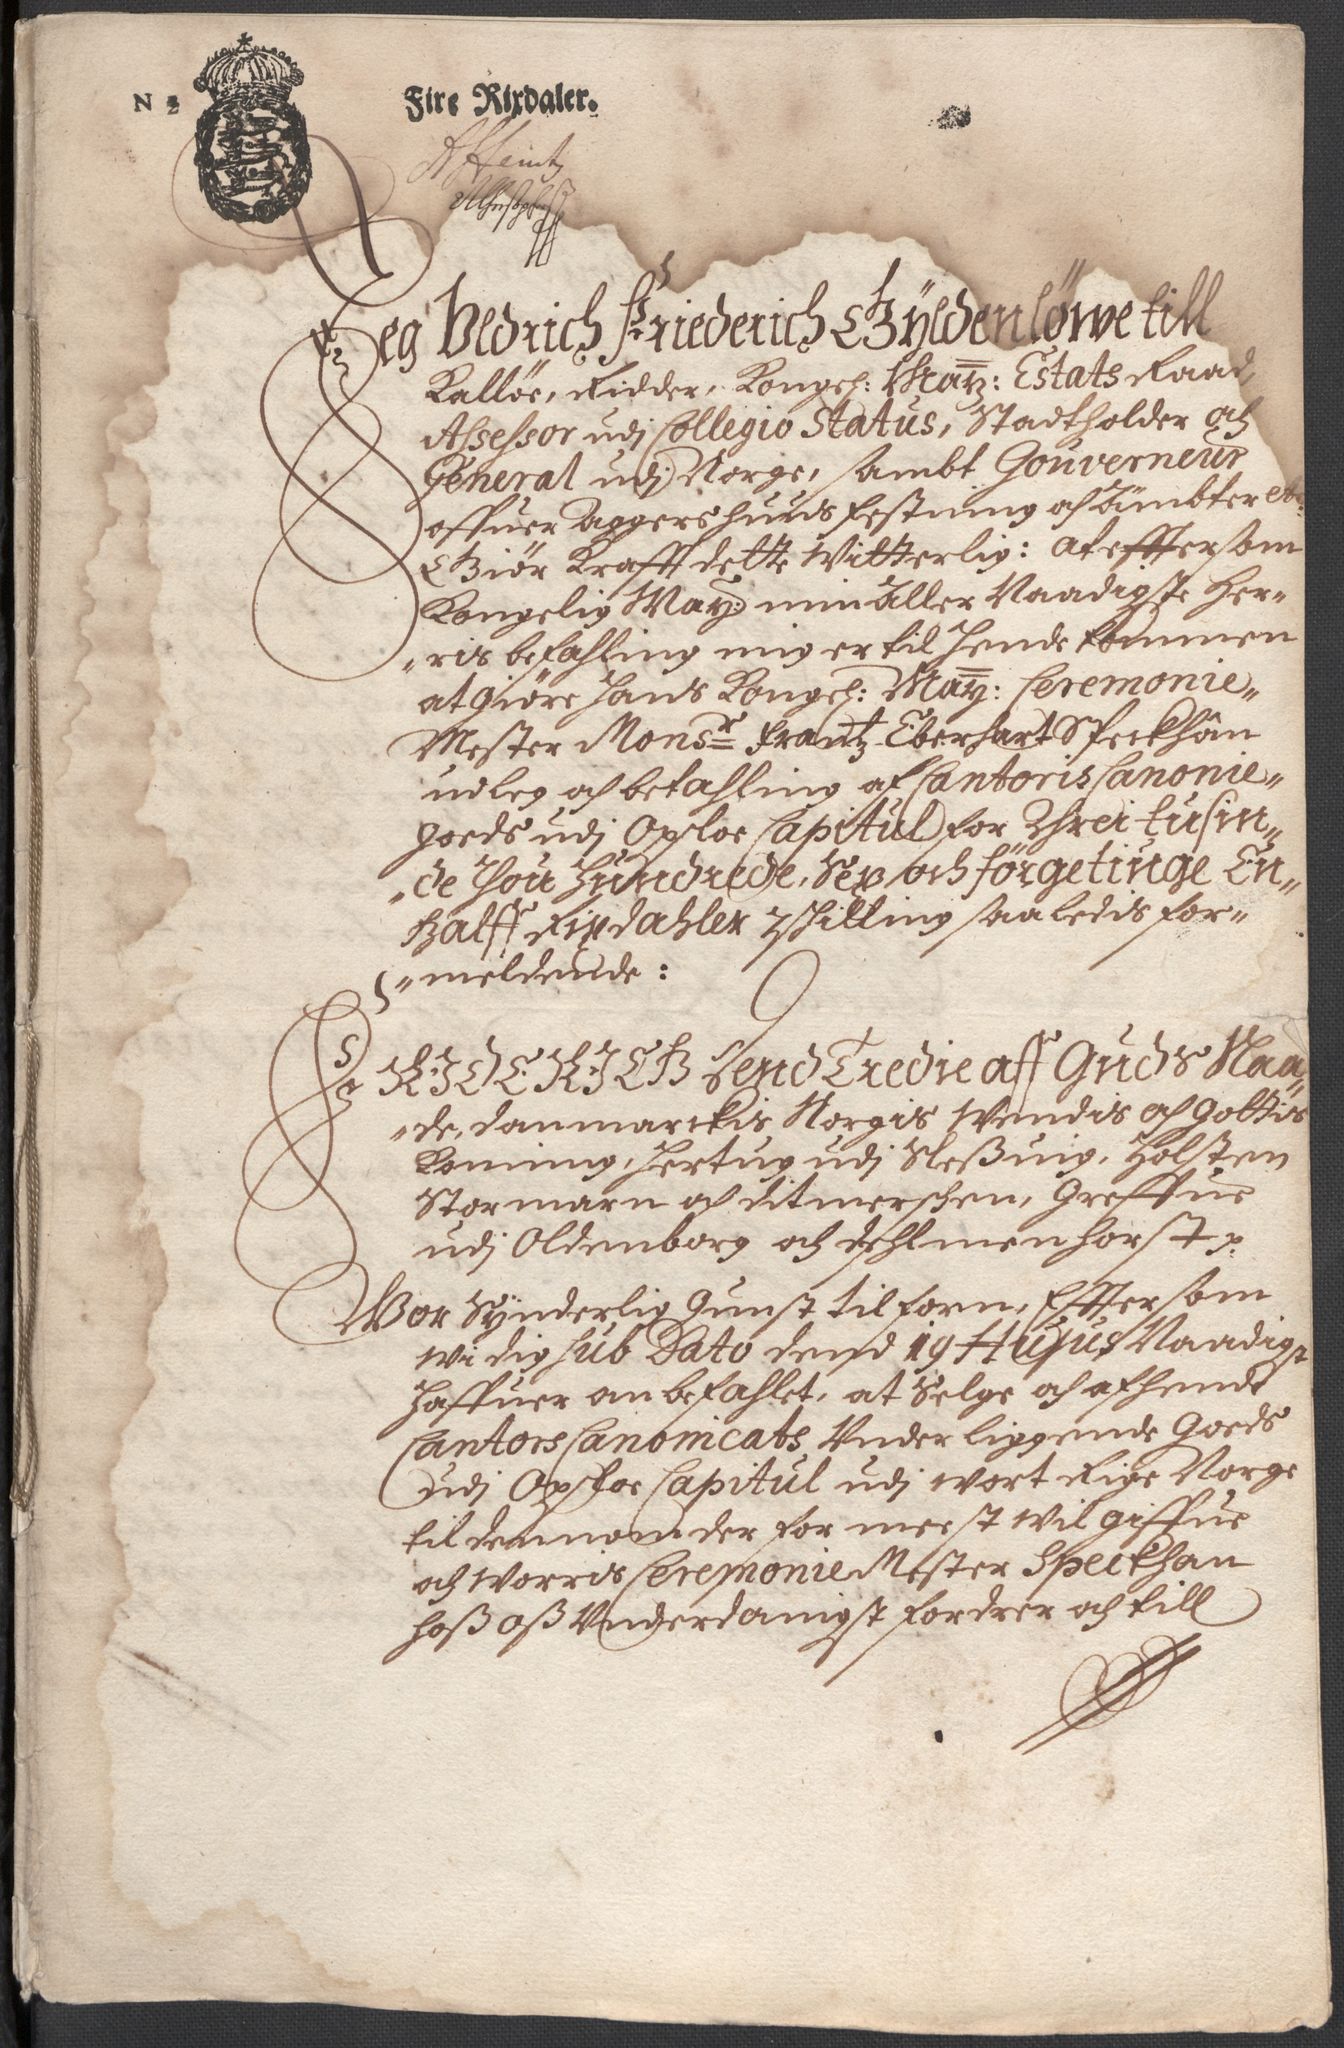 N 2
Fire Rixdaler.
Jeg Vldrich Friederich Gÿldenlöwe till
Kallöe, Ridder, Kongel: Maÿ: Estats Raad,
Assessor udj Collegio Status, Stadtholder och
General udj Norge, sambt Gouverneur
offuer Aggershuus Festning och Ämbter etc:
Giör Krafft dette Witterlig: at effttersom
Kongelig Maÿ: min Aller Naadigste Her„
„ris befahling mig er til Hende kommen
at giöre Hans Kongel: Maÿ: Ceremonie„
Mester Monsr Frantz Eberhart Speckhan
udleg och betahling af Cantoris Canonie„
goeds udj Opsloe Capitul for Threi tusin„
„de Thou Hundrede, Sex och förgetiuge En„
halff Rixdahler 7 skilling saaledis for„
„meldende:
FRIDERICH dend Tredie aff Guds Naa„
„de, Danmarckis Norgis Wendis och Gottis
Konning, Hertug udj Sleßuig, Holsten
Stormarn och Ditmerschen, Greffue
udj Oldenborg och Dehlmenhorst p.
Wor Sÿnderlig Gunst tilforn, Efttersom
wi dig sub Dato dend 19 Hujus Naadigst
Haffuer anbefahlet, at Selge och afhende
Cantors Canonicats Vnderliggende Goeds
udj Opsloe Capitul udj wort Rige Norge
til dennom der for meest wil giffue
och worris Ceremonie Mester Speckhan
hoß oß Vnderdanigst fordrer och till